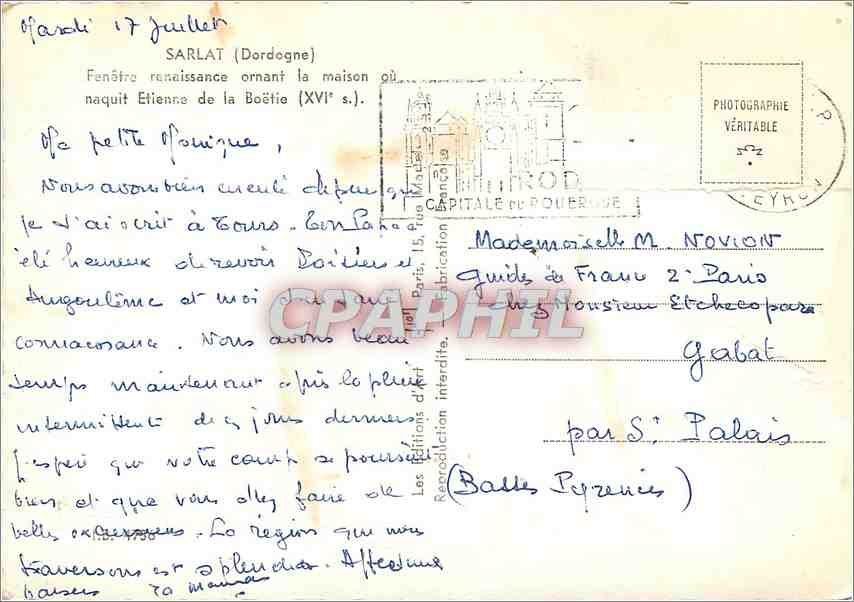 Mardi 17 Juillet
SARLAT (Dordogne)
Fenêtre renaissance ornant la maison où
naquit Etienne de la Boëtie (XVIe s.).
Ma petite Monique,
Nous avons bien circulé depuis que
je t'ai écrit à Tours. Ton Papa a
été heureux de revoir Poitiers et
Angoulême et moi d'en faire
connaissance. Nous avons beau
temps maintenant après la pluie
intermittente des jours derniers
J'espère que votre camp se poursuit
bien et que vous allez faire de
belles excursions. La région que nous
traversons est splendide. Affectueux
baisers ta maman
Les Editions d'Art Paris, 15, rue
Reproduction interdite. Fabrication Française
ROD
CAPITALE DU ROUERGUE
PHOTOGRAPHIE
VÉRITABLE
EYRON
Mademoiselle M. NOVION
Guides de France 2e Paris
chez Monsieur Etchecopar
Gabat
par St Palais
(Basses Pyrenées)
CPAPHIL